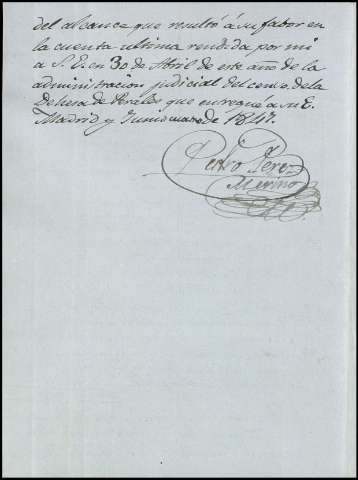 del alcance que resultó á su fabor en
la cuenta ultima rendida por mi
a S. E. en 30 de Abril de este año de la
administracion judicial del censo de la
Dehesa de Perales que entregue a su E.
Madrid y Junio once de 1847.
Pedro Perez
Merino